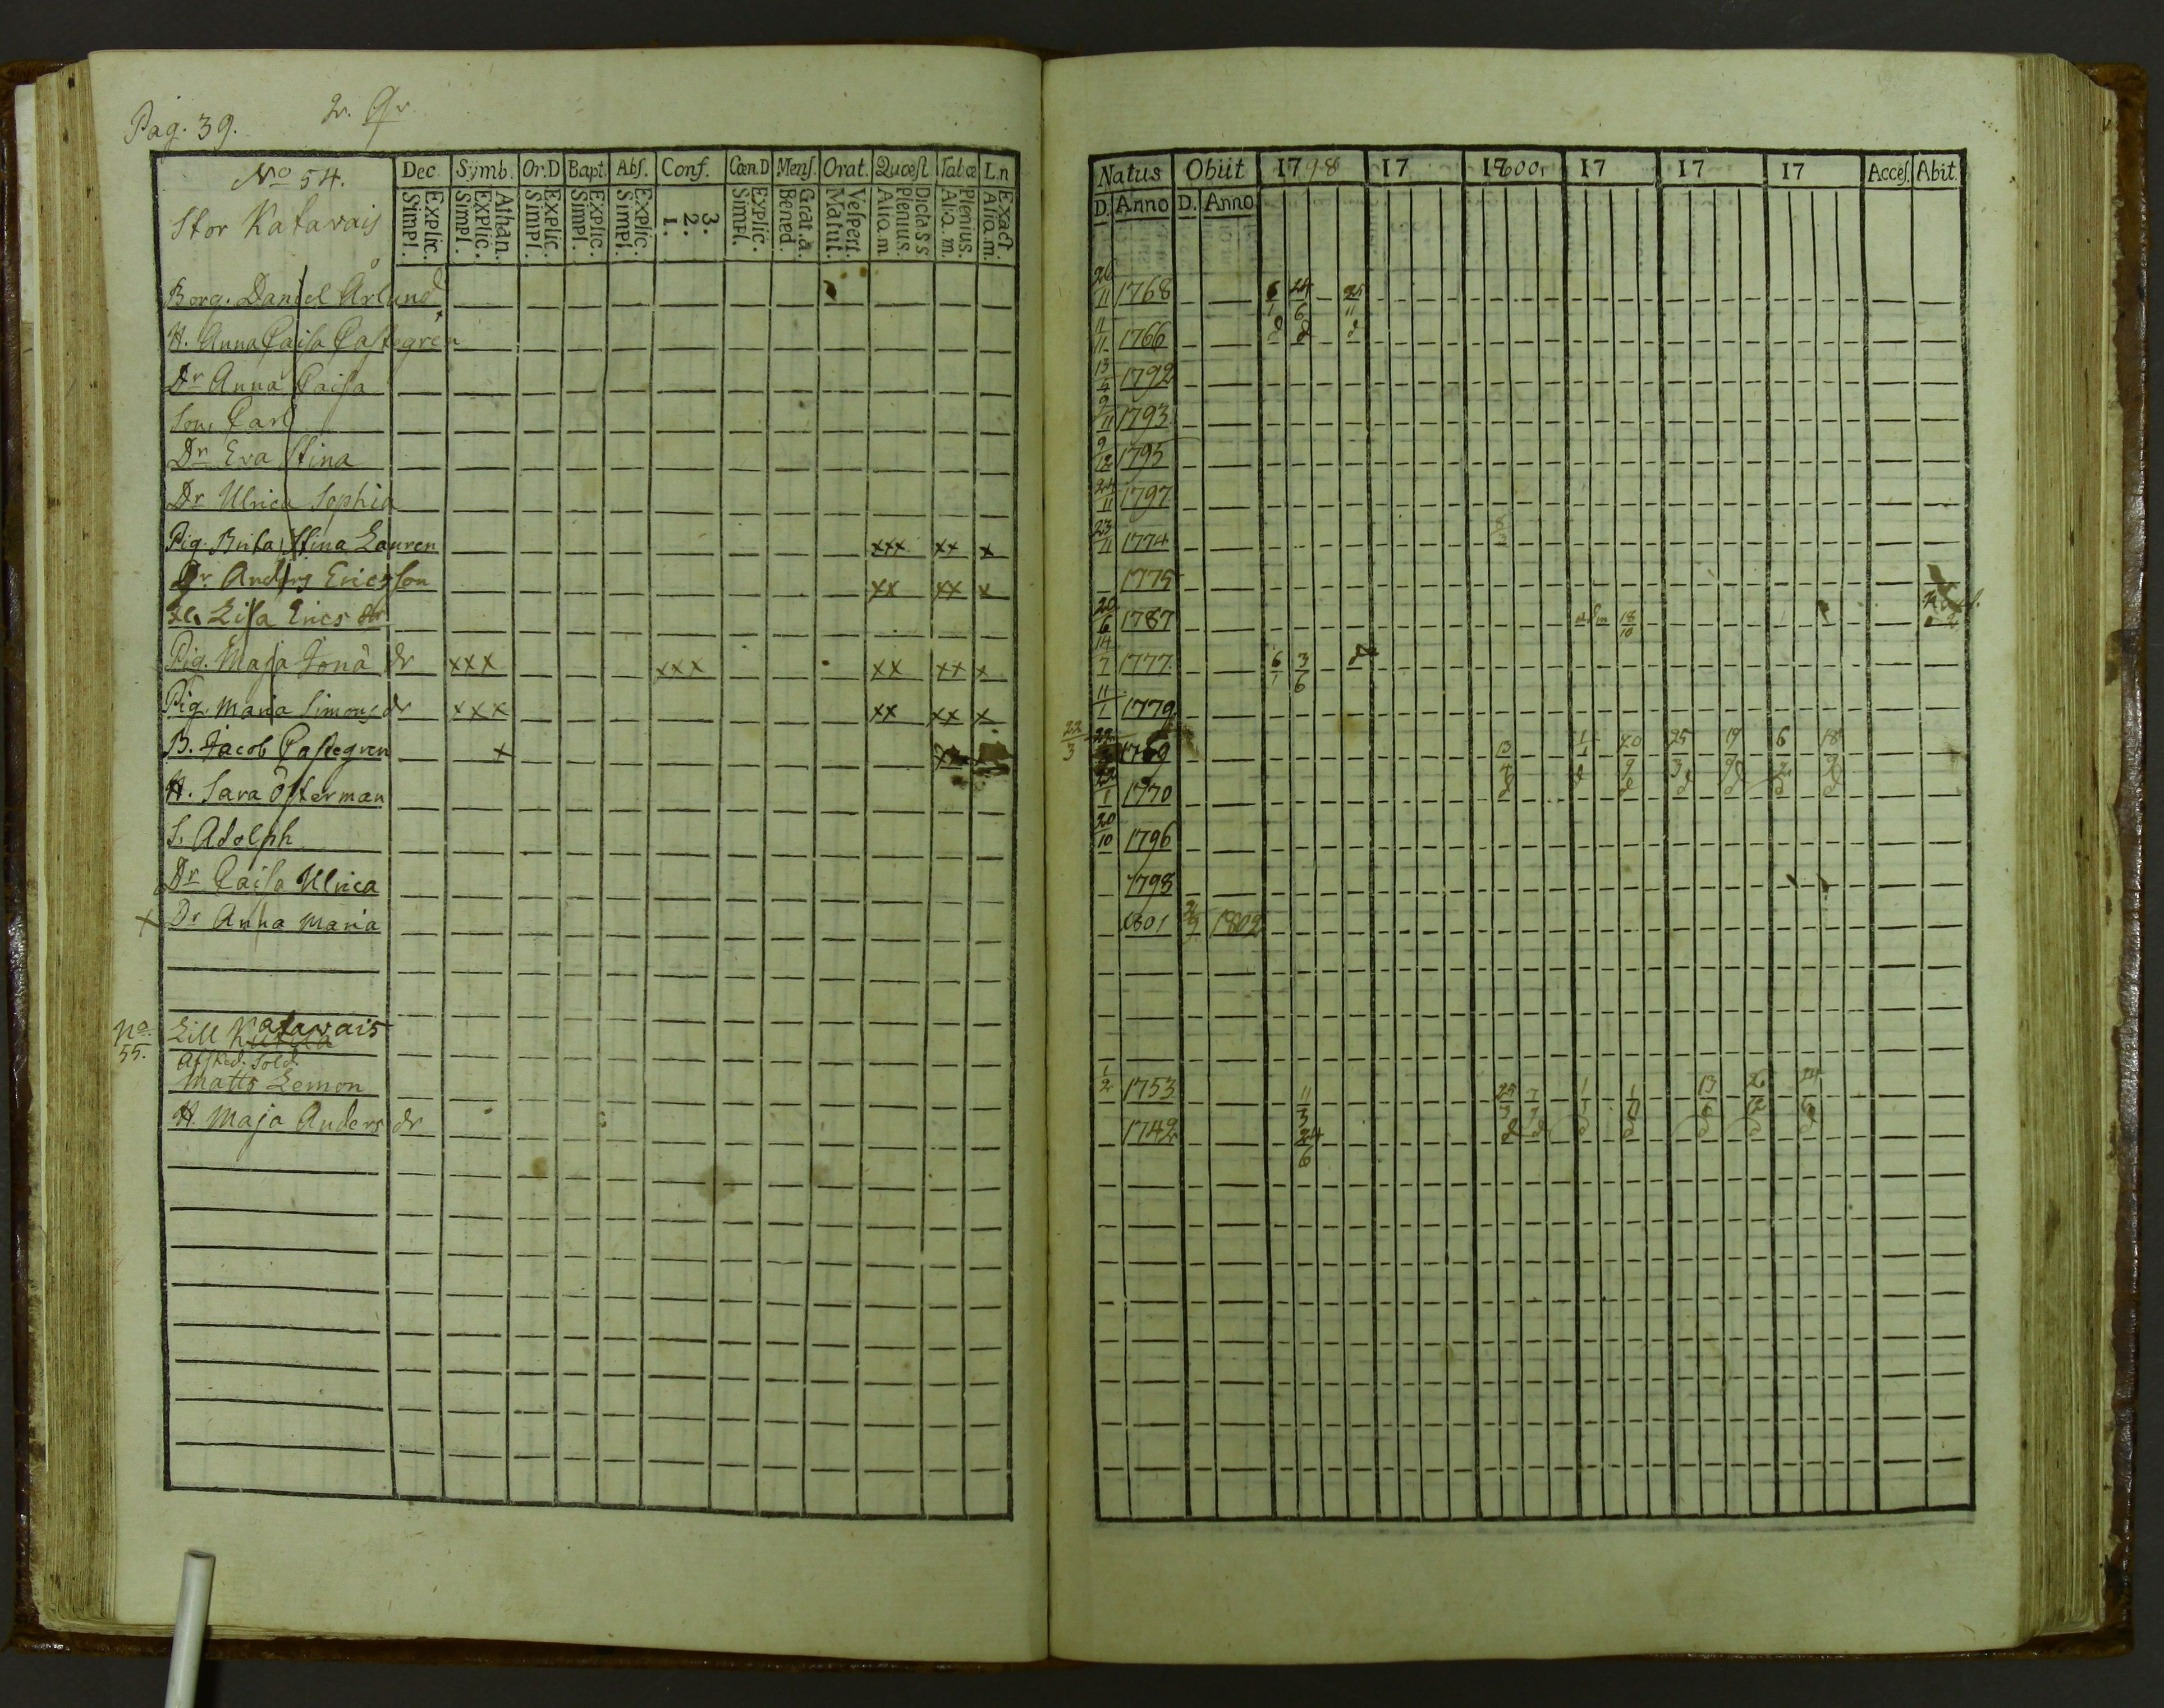 Pag. 39.
No 54.
Stor Katavais
Dec. Symb. Or.D Bapt. Abs. Conf. Cœn.D Mens. Orat. Quæst Tab.æ L.n
Explic. Simpl. Athan. Explic. Simpl. Explic. Simpl. Explic. Simpl. Explic. Simpl. 3. 2. 1. Explic. Simpl. Grat.a. Bened. Vespert. Matut. Dictass Plenius. Aliq.m Plenius. Aliq.m. Exact. Aliq.m.
Natus Obiit 1798 17 1800, 17 17 17 Acces. Abit.
D. Anno D. Anno
Borg. Daniel Ärlund 26/11 1768 6/1 24/6 25/11
H. Anna Caisa Castegren 11/11 1766 d d d
Dr Anna Caisa 13/4 1792
Son, Carl 9/11 1793
Dr Eva Stina 9/12 1795
Dr Ulrica Sophia 24/11 1797
Pig. Brita Stina Lauren xxx xx x 23/11 1774
Dr Anders Ericsson xx xx x 1775
Lisa Erics dr 20/6 1787 18/10
Pig. Maja Jonä dr xxx xxx xx xx x 14/7 1777 6/1 3/6
Pig. Maria Simons dr xxx xx xx x 11/1 1779
B. Jacob Castegren x 22/3 1769 13/4 1/1 20/9 25/3 19/9 6/2 18/9
H. Sara Österman 1770 d d d d d d d
S. Adolph 20/10 1796
Dr Caisa Ulrica 1798
x Dr Anna Maria 1801 1802
No. 55. Lill Katavais
Afsked. Sold.
Matts Lemon 1/2 1753 11/3 25/3 1/1 13 26/12 24
H. Maja Anders dr 1742 24/6 d d d d d d d